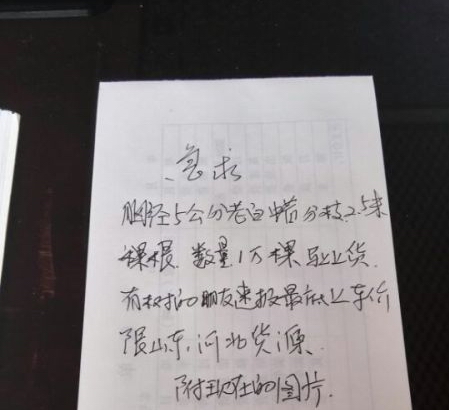 急求
胸径5公分老白蜡分枝2.5米
裸根.数量1万棵马上上货.
有树的朋友速报最低上车价
限山东,河北货源.
附现在的图片.